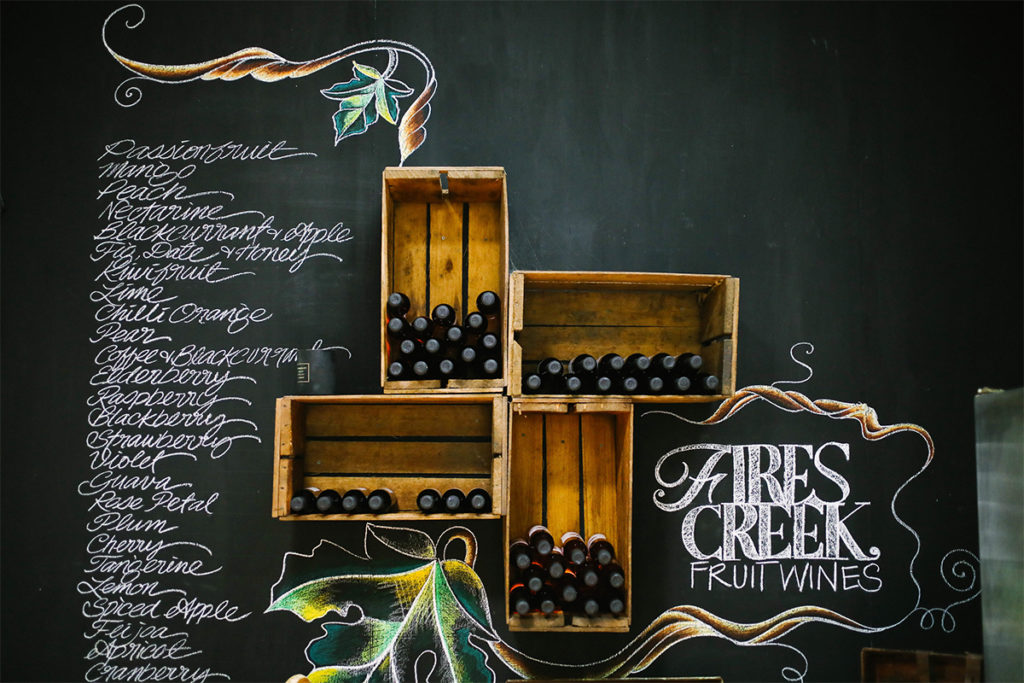 Passionfruit
mango
Peach
Nectarine
Blackcurrant & Apple
Fig, Date & Honey
Kiwifruit
Lime
Chilli Orange
Pear
Coffee & Blackcurrant
Elderberry
Raspberry
Blackberry
Strawberry
Violet
Guava
Rose Petal
Plum
Cherry
Tangerine
Lemon
Spiced Apple
Feijoa
Apricot
Cranberry
FIRES
CREEK
FRUIT WINES